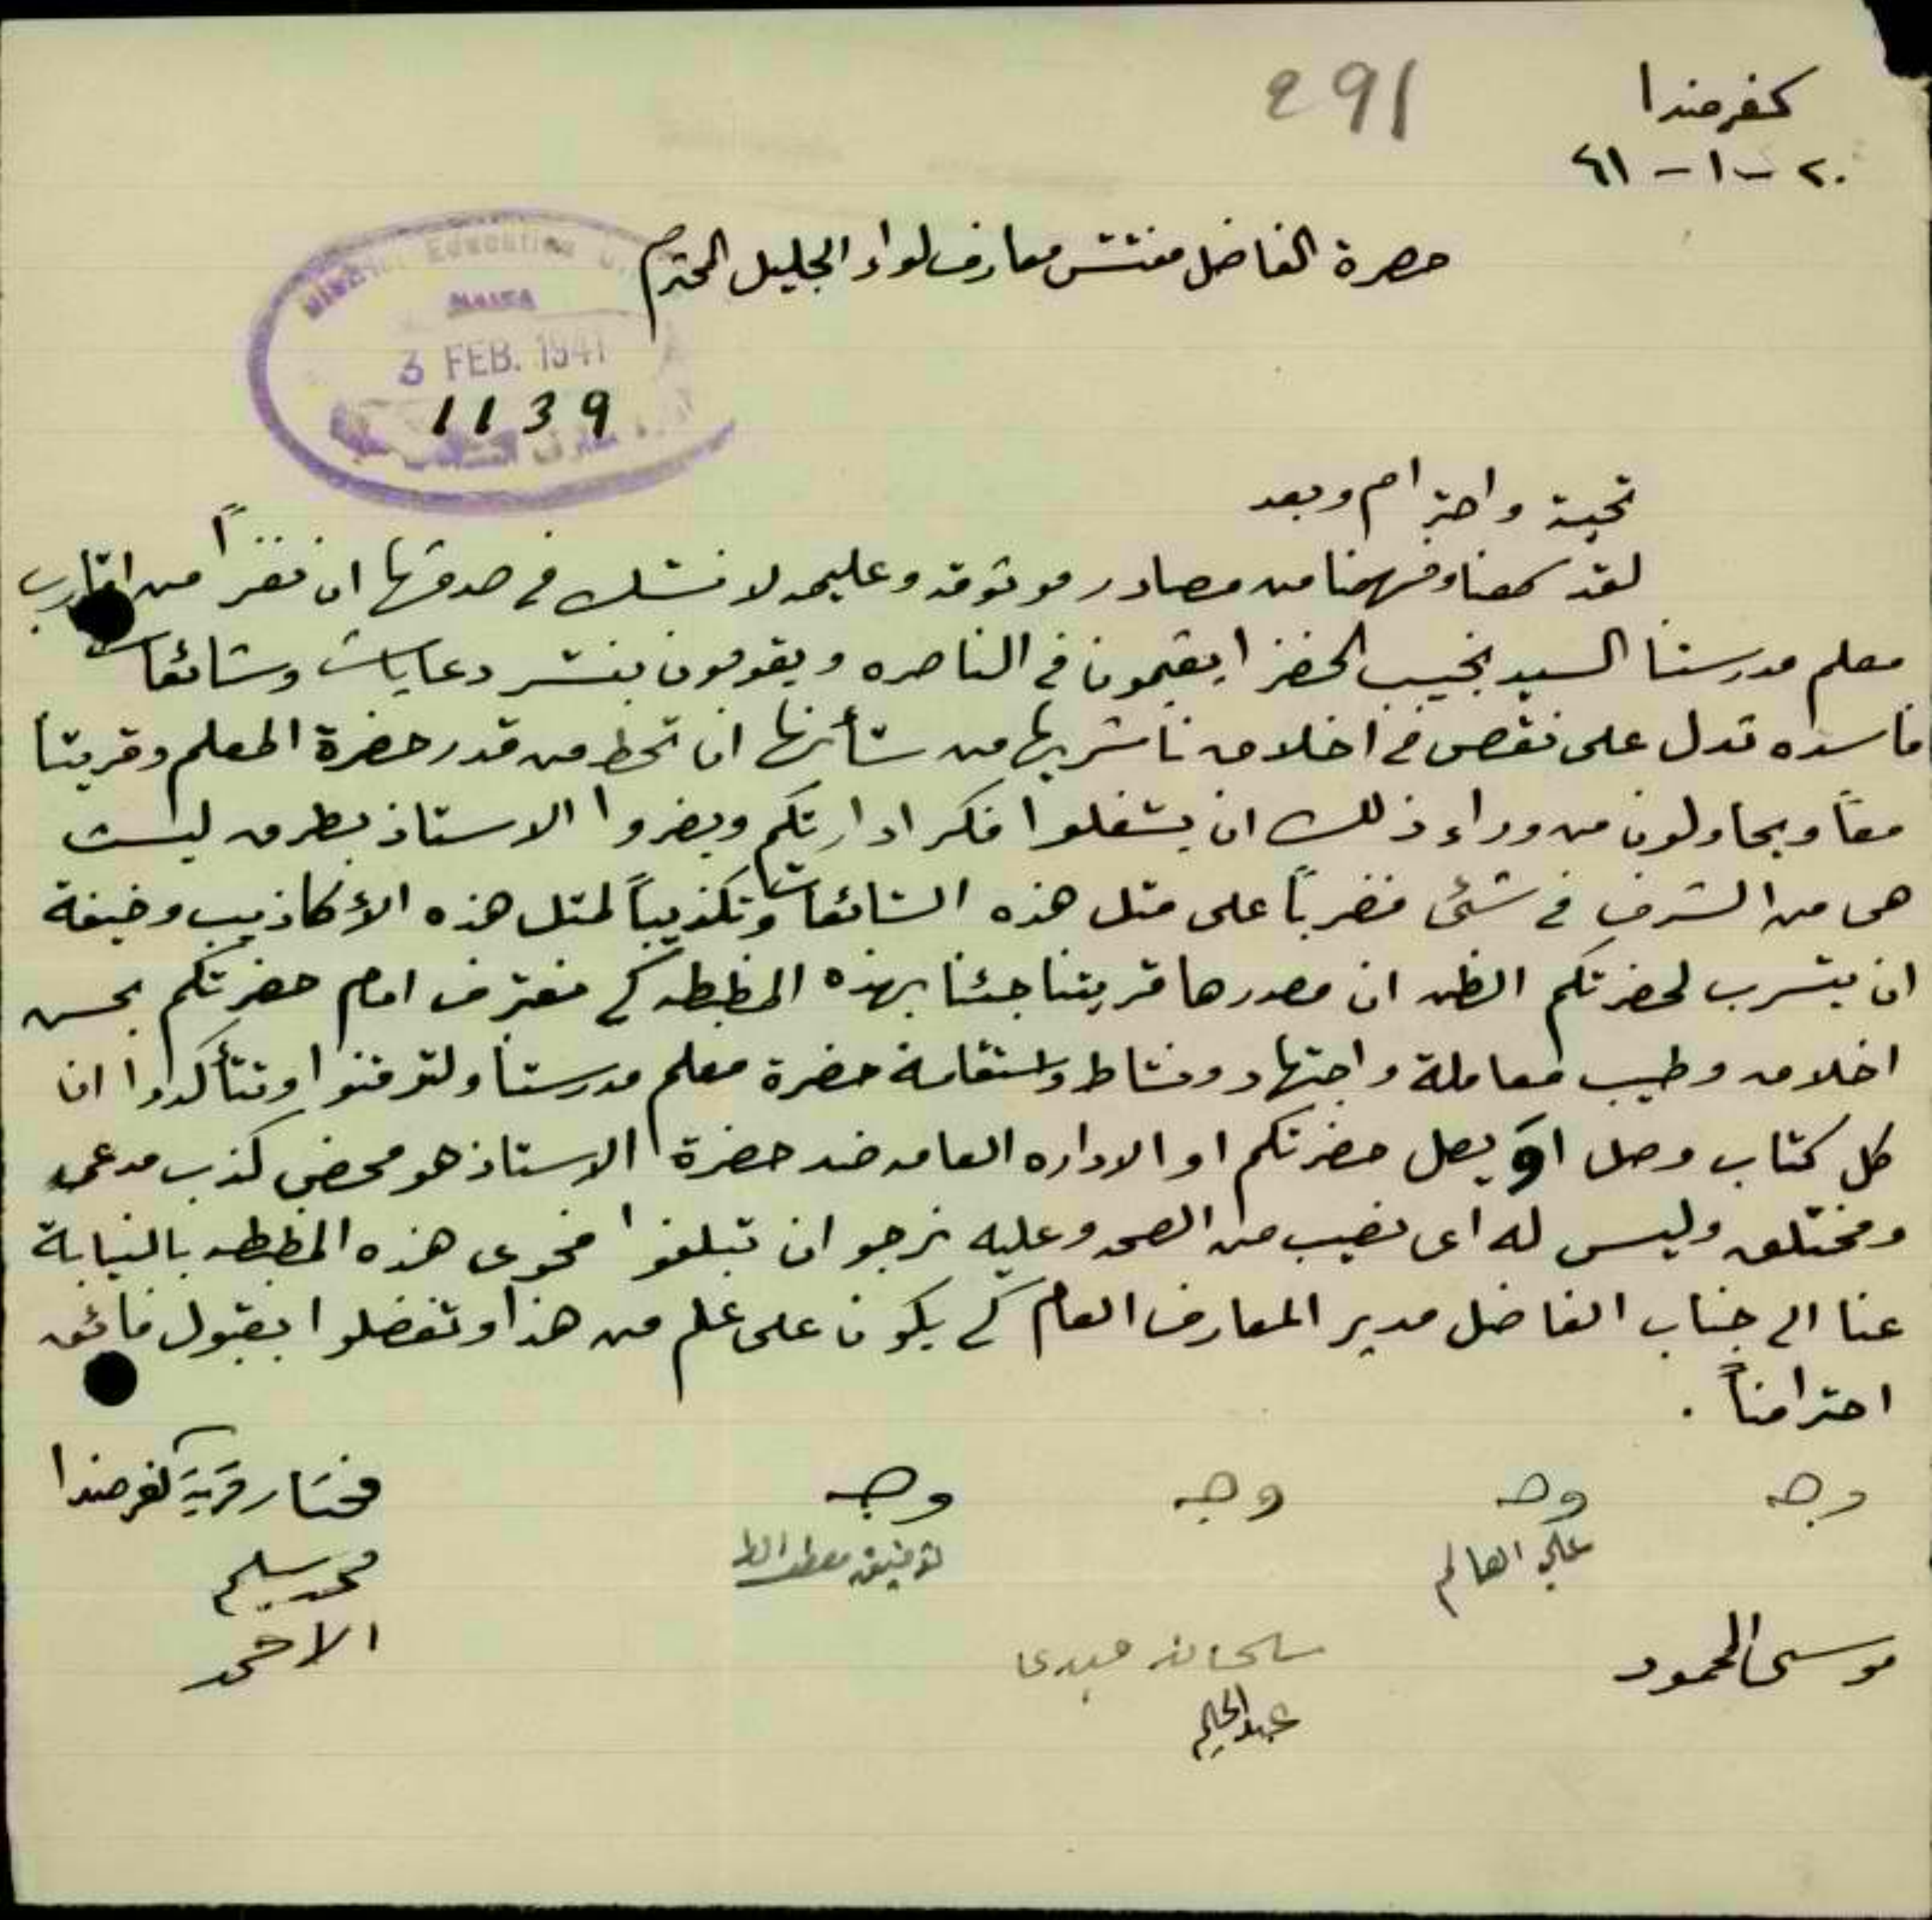 كفرمندا
291
٢٠ - ١ - ٤١
حضرة الفاضل مفتش معارف لواء الجليل المحترم
District Education
HAIFA
3 FEB. 1941
1139
تحية واحترام وبعد
لقد سمعنا وفهمنا من مصادر موثوقه وعليمه لا نشك في صدقها ان نفراً من اقارب
معلم مدرستنا السيد نجيب الخضرا يقيمون في الناصره ويقومون بنشر دعايات وشائعات
فاسده تدل على نقص في اخلاق ناشريها من شأنها ان تحط من قدر حضرة المعلم وقريتنا
معاً ويحاولون من وراء ذلك ان يشغلوا فكر ادارتكم ويضروا الاستاذ بطرق ليست
هي من الشرف في شئ فضرباً على مثل هذه الشائعات وتكذيباً لمثل هذه الأكاذيب وخيفة
ان يتسرب لحضرتكم الظن ان مصدرها قريتنا جئنا بهذه المظبطه كي نعترف امام حضرتكم بحسن
اخلاق وطيب معاملة واجتهاد ونشاط واستقامة حضرة معلم مدرستنا ولتوقنوا وتتأكدوا ان
كل كتاب وصل او يصل حضرتكم او الاداره العامه ضد حضرة الاستاذ هو محض كذب مدعى
ومختلق وليس له اى نصيب من الصحه وعليه نرجو ان تبلغوا فحوى هذه المظبطه بالنيابة
عنا الى جناب الفاضل مدير المعارف العام كي يكون على علم من هذا وتفضلوا بقبول فائق
احترامنا .
وجه وجه وجه وجه مختار قرية كفرمندا
علي توفيق محمد سليم
موسى المحمود الاحمد
عبد الحليم